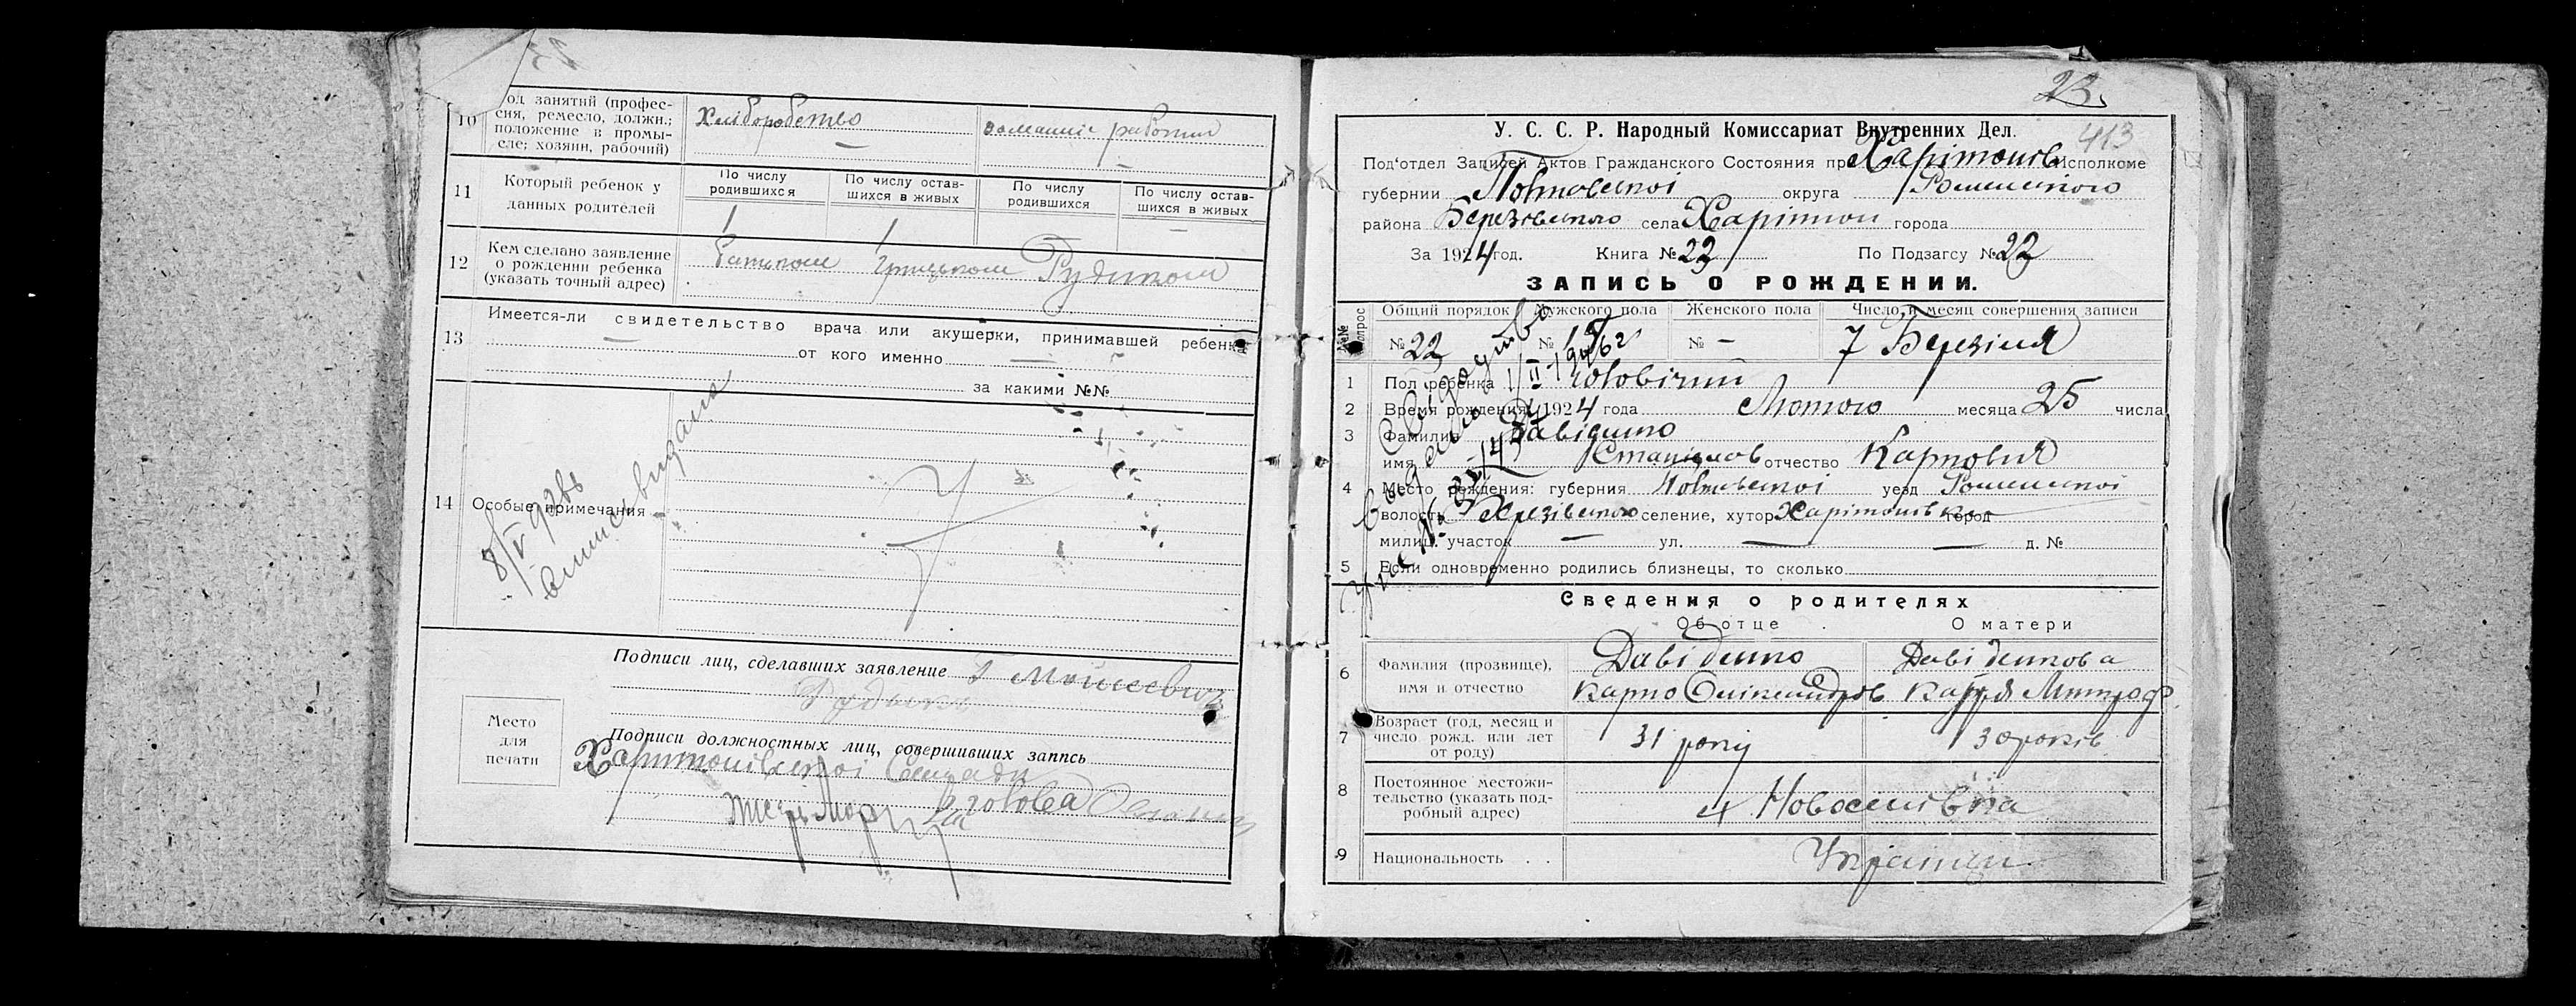 10
од занятий (профес-
сия, ремесло, должн.;
положение в промы-
сле; хозяин, рабочий)
Хліборобство
домашні работи
11
Который ребенок у
данных родителей
По числу
родившихся
По числу остав-
шихся в живых
По числу
родившихся
По числу остав-
шихся в живых
1
1
—
12
Кем сделано заявление
о рождении ребенка
(указать точный адрес)
батьком Грицьком Рудиком
13
Имеется-ли свидетельство врача или акушерки, принимавшей ребенка
от кого именно
за какими №№
14
Особые примечания
8/V 92
выпись видана
Подписи лиц, сделавших заявление Г Моисеевич
Рудыко
Место
для
печати
Подписи должностных лиц, совершивших запись
Харитонівської Сельради
голова
23
413
У. С. С. Р. Народный Комиссариат Внутренних Дел.
Под'отдел Записей Актов Гражданского Состояния при Харітонів Исполкоме
губернии Полтавської округа Роменського
района Березівського села Харітон города
За 1924 год. Книга № 22 По Подзагсу № 22
ЗАПИСЬ О РОЖДЕНИИ.
№№
вопрос
Общий порядок
Мужского пола
Женского пола
Число и месяц совершения записи
№ 22
№ 15
№ —
7 Березіля
1 Пол ребенка чоловічий
2 Время рождения: 1924 года Лютого месяца 25 числа
3 Фамилия Давіденко
имя Станіслов отчество Карповия
4 Место рождения: губерния Полтавської уезд Роменської
волость Березівського селение, хутор Харітонівка город
милиц. участок — ул. — — д. №
5 Если одновременно родились близнецы, то сколько
Свідоцтво
видано
Сведения о родителях
Об отце
О матери
6
Фамилия (прозвище),
имя и отчество
Давіденко
Карпо Олександров
Давіденкова
Катря Митроф
7
Возраст (год, месяц и
число рожд. или лет
от роду)
31 року
30 років
8
Постоянное местожи-
тельство (указать под-
робный адрес)
х Новоселівка
9
Национальность . .
Українци